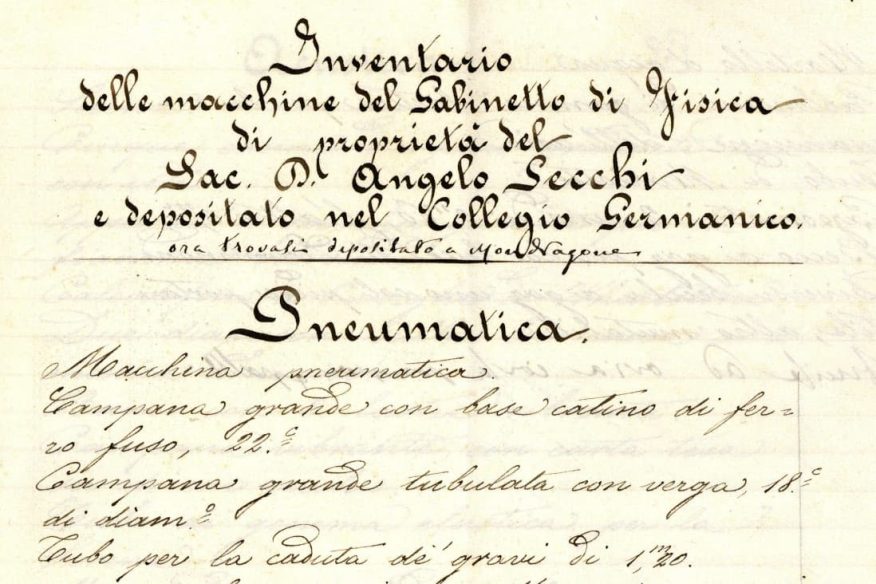 Inventario
delle macchine del Gabinetto di Fisica
di proprietà del
Sac. D. Angelo Secchi
e depositato nel Collegio Germanico.
ora trovasi depositato a Mondragone
Pneumatica.
Macchina pneumatica.
Campana grande con base catino di fer=
ro fuso, 22.c
Campana grande tubulata con verga, 18.c
di diamo
Tubo per la caduta de' gravi di 1,m20.